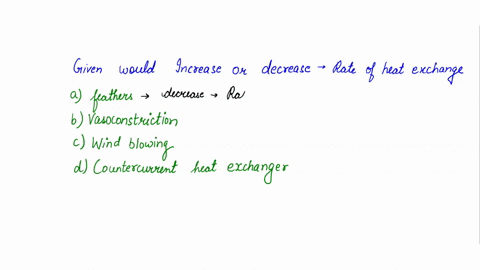 Given would Increase or decrease → Rate of heat exchange
a) feathers → decrease → Ra
b) Vasoconstriction
c) Wind blowing
d) Countercurrent heat exchanger